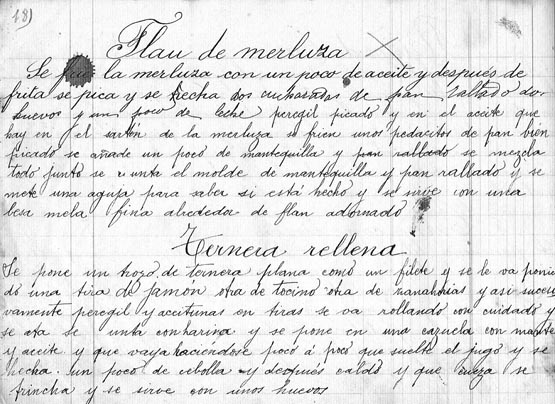 18)
Flan de merluza
Se frie la merluza con un poco de aceite y después de
frita se pica y se hecha dos cucharadas de pan rallado dos
huevos y un poco de leche peregil picado y en el aceite que
hay en el sartén de la merluza se frien unos pedacitos de pan bien
picado se añade un poco de mantequilla y pan rallado se mezcla
todo junto se unta el molde de mantequilla y pan rallado y se
mete una aguja para saber si está hecho y se sirve con una
besa mela fina alrededor de flan adornado
Ternera rellena
Se pone un trozo de ternera plana como un filete y se le va ponien
do una tira de jamón otra de tocino otra de zanahorias y asi suces
vamente peregil y aceitunas en tiras se va rollando con cuidado y
se ata se unta con harina y se pone en una cazuela con mante
y aceite y que vaya haciendose poco á poco que suelte el jugo y se
hecha un poco de cebolla y después caldo y que cueza se
trincha y se sirve con unos huevos